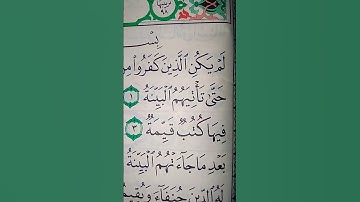 بِسْ
لَمْ يَكُنِ الَّذِينَ كَفَرُوا مِنْ
حَتَّىٰ تَأْتِيَهُمُ الْبَيِّنَةُ ١
فِيهَا كُتُبٌ قَيِّمَةٌ ٣
بَعْدِ مَا جَاءَتْهُمُ الْبَيِّنَةُ
لَهُ الدِّينَ حُنَفَاءَ وَيُقِيمُ